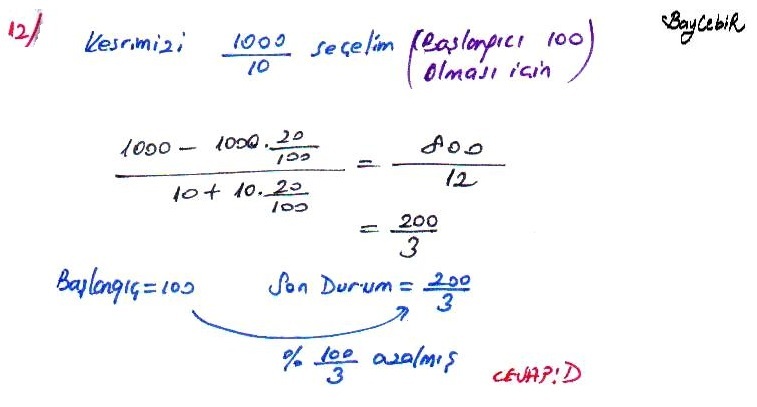 12/ Kesrimizi 1000/10 seçelim (Başlangıcı 100 olması için)
BayCebiR
(1000 - 1000 . 20/100) / (10 + 10 . 20/100) = 800/12
= 200/3
Başlangıç = 100 Son Durum = 200/3
% 100/3 azalmış
CEVAP: D